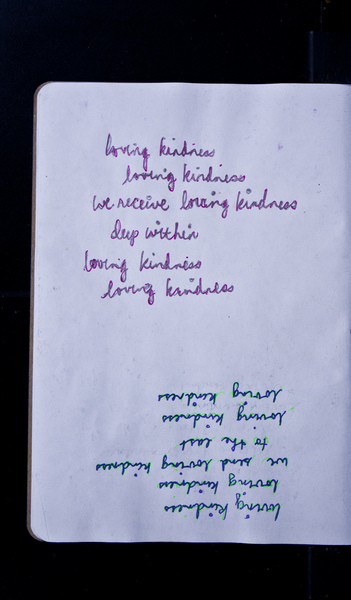 loving kindness
loving kindness
we receive loving kindness
deep within
loving kindness
loving kindness
loving kindness
loving kindness
we send loving kindness
to the east
loving kindness
loving kindness